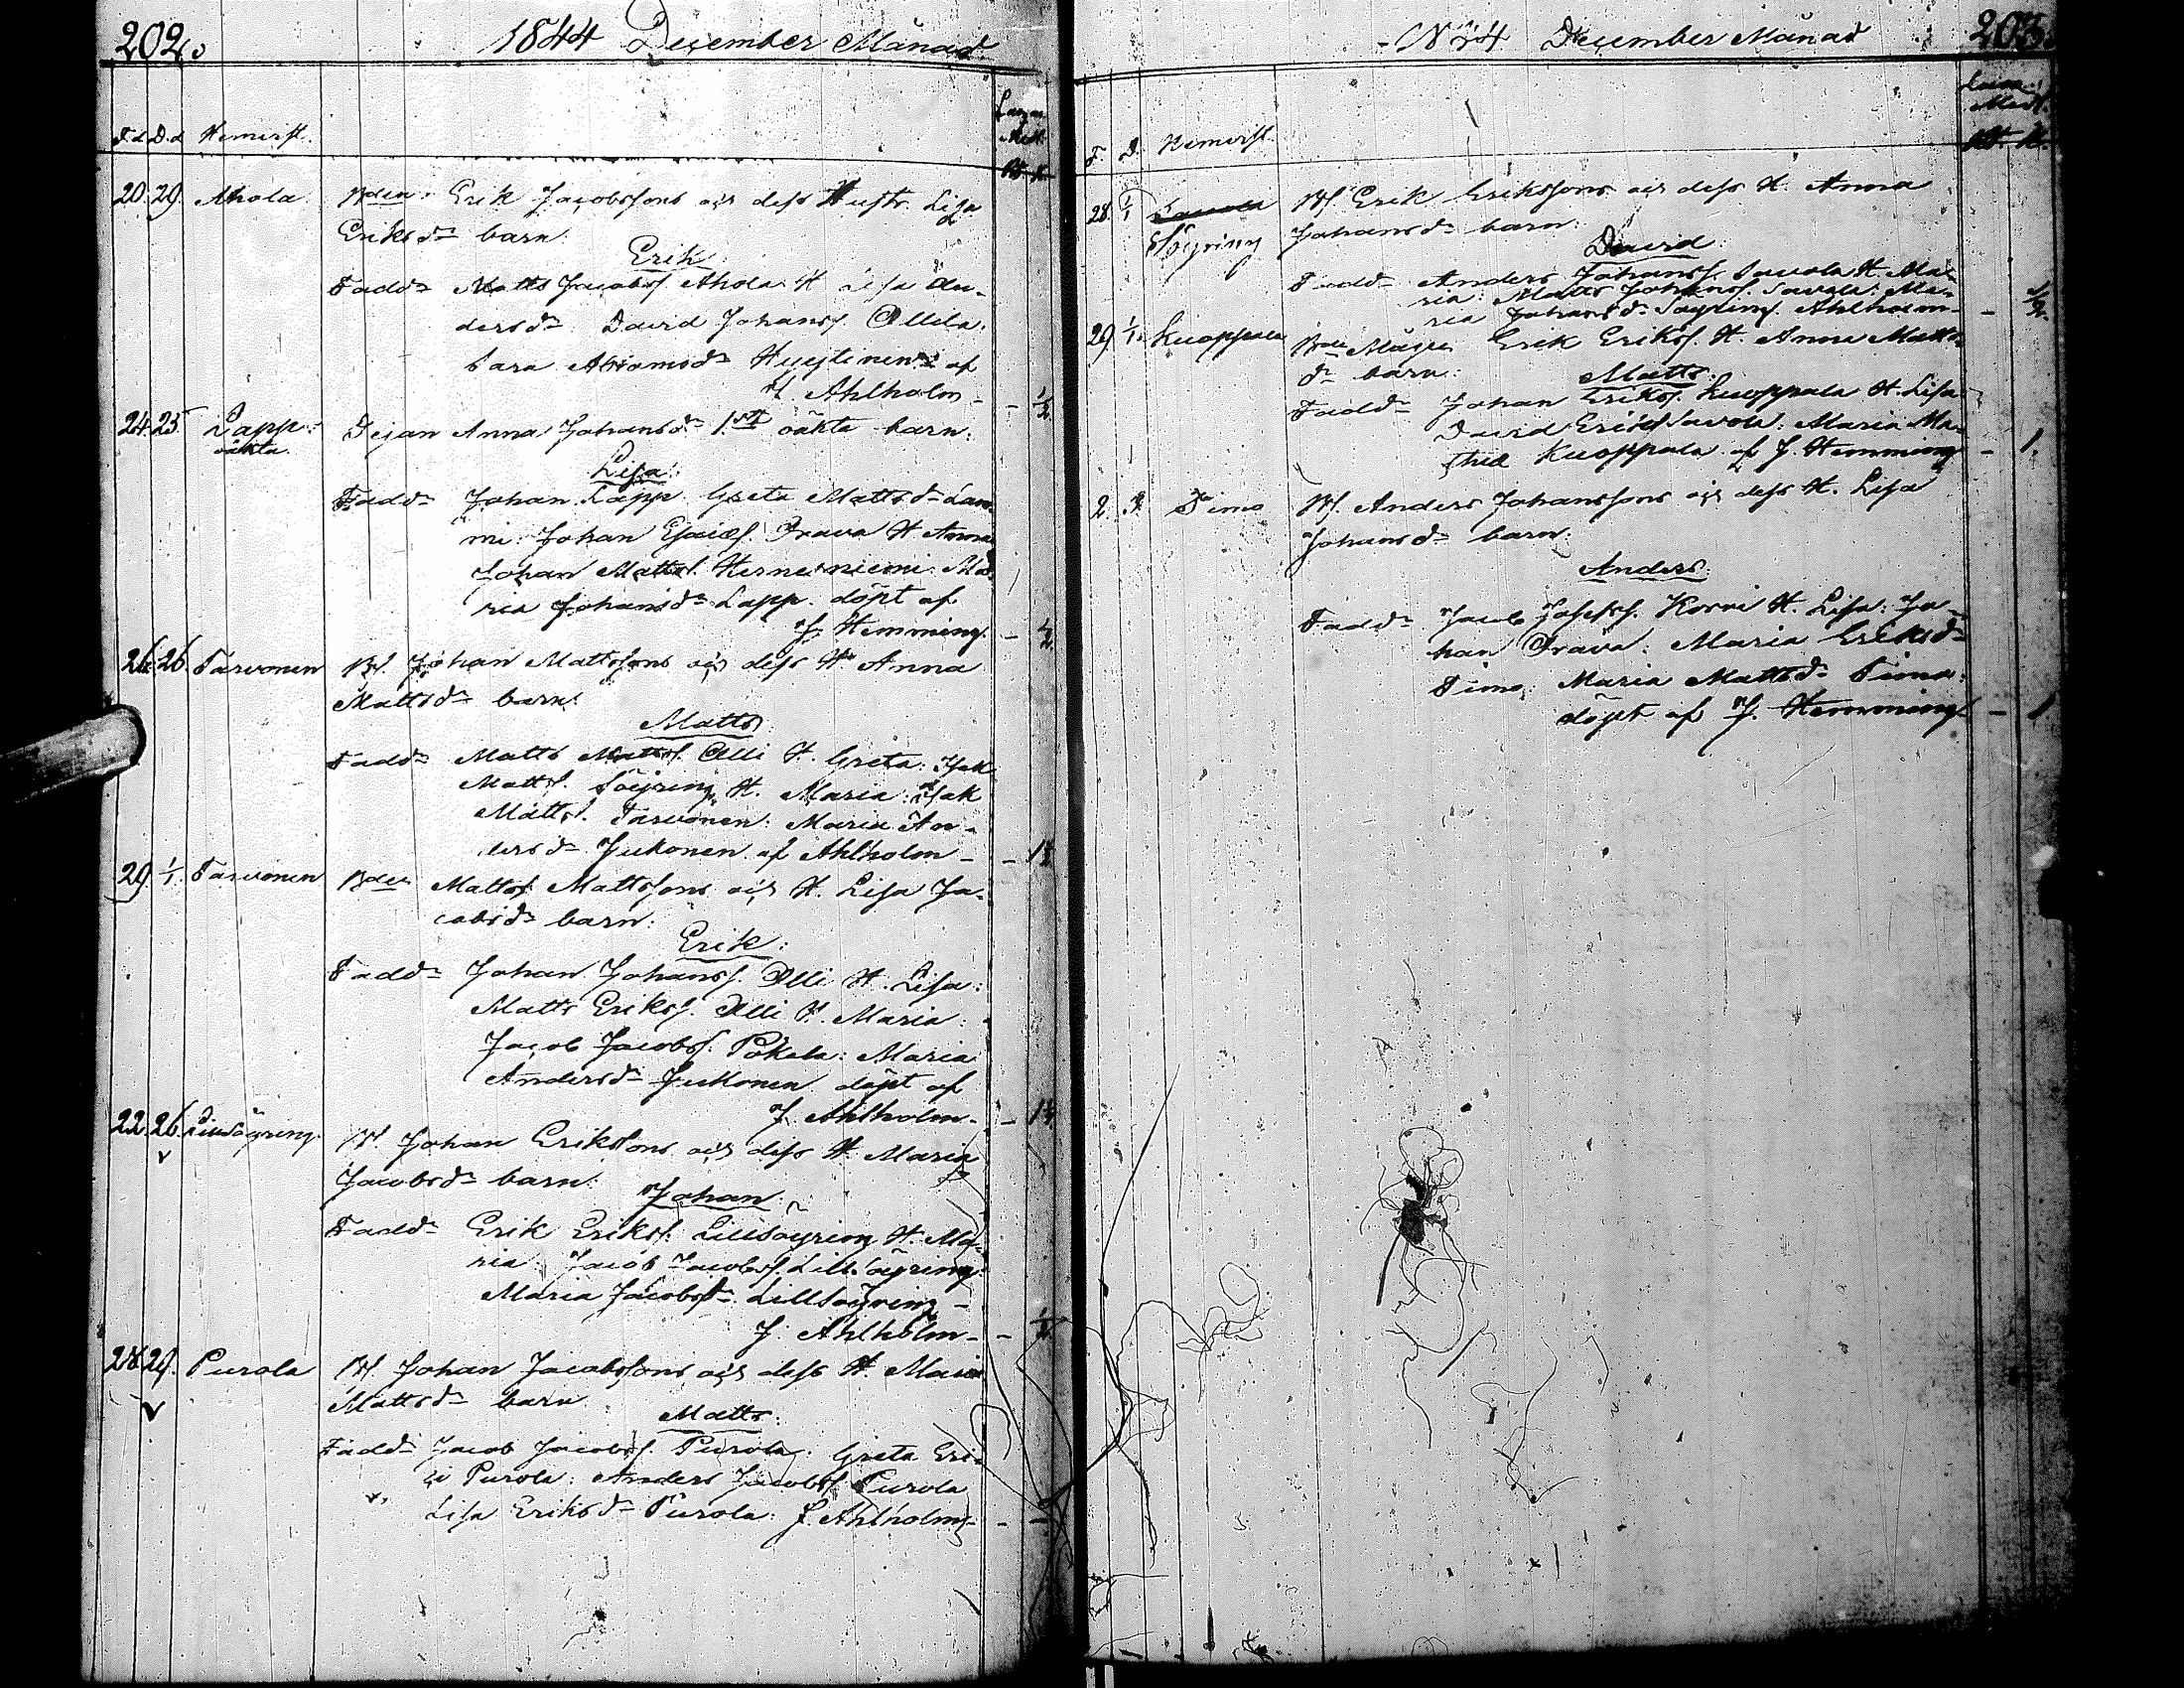 202.
1844 December Månad.
F.d D.d Hemvist.
20. 29. Ahola Bden Erik Jacobssons och dess Hustr. Lisa
Eriksdr barn:
Erik
Faddr Matts Jacobss. Ahola H. Lisa An-
dersdr David Johanss. Ollila:
Sara Abramsdr Hyytinen: af
J. Ahlholm - - ½
24. 25 Lapp: Pejan Anna Johansdr 1sta oäkta barn:
oäkta.
Lisa:
Faddr Johan Lapp Greta Mattsdr Lam-
mi: Johan Esaiæs. Orava H Anna
Johan Mattss. Hernesniemi: Ma-
ria Johansdr Lapp. döpt af
J. Hemming. - ½
26. 26. Tarvonen Bd. Johan Mattssons och dess H. Anna
Mattsdr barn:
Matts
Faddr Matts Mattss. Olli H. Greta: Isak
Mattss. Söyring H. Maria: Isak
Mattss. Tarvonen: Maria An-
dersdr Jukonen af Ahlholm -
29. 1/1. Tarvonen Bden Matts Mattssons och H. Lisa Ja-
cobsdr barn:
Erik:
Faddr Johan Johanss. Olli H. Lisa:
Matts Erikss. Olli H. Maria:
Jacob Jacobss. Pokela: Maria
Andersdr Jukonen döpt af
J. Ahlholm -
22. 26. Lillsöyring Bd. Johan Erikssons och dess H. Maria
Jacobsdr barn:
Johan:
Faddr Erik Erikss. Lillsöyring H. Ma-
ria: Jacob Jacobss. Lillsöyring:
Maria Jacobsdr Lillsöyring -
J. Ahlholm - - ½
28. 29. Purola Bd. Johan Jacobssons och dess H. Maria
Mattsdr barn
Matts:
Faddr Jacob Jacobss. Purola: Greta Eri-
ci Purola: Anders Jacobss. Purola
Lisa Eriksdr Purola: J. Ahlholm -
December Månad 203.
F. D. Hemvist.
28. 1/1 Söyring Bd. Erik Erikssons och dess H. Anna
Johansdr barn:
David:
Faddr Anders Johanss. Savola H. Ma-
ria: Matts Johanss. Savola: Ma-
ria Johansdr Söyring. Ahlholm - - ½
29. 1/1. Kuoppala Bde Mågen Erik Erikss. H. Anna Matts-
dr barn:
Matts:
Faddr Johan Erikss. Kuoppala H. Lisa:
David Erikss. Savola: Maria Ma-
thæ Kuoppala af J. Hemming - 1.
2. Timo Bd. Anders Johanssons och dess H. Lisa
Johansdr barn:
Anders:
Faddr Jacob Josephss. Korvi H. Lisa: Jo-
han Orava: Maria Eriksdr
Timo: Maria Mattsdr Timo:
döpt af J. Hemming - 1